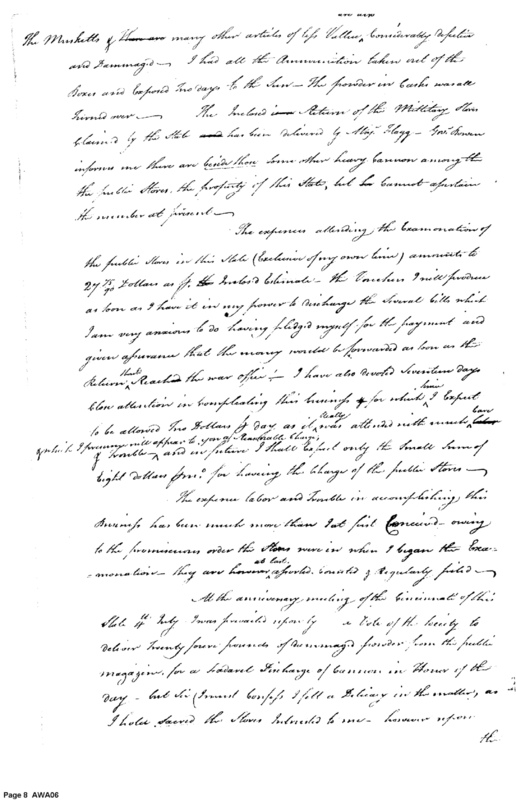 are are
The Musketts & There are many other articles of less Vallue, Considerably defective
and Dammaged — I had all the Ammunition taken out of the
Boxes and Exposed Two days to the Sun — The powder in Casks was all
Turned over — The Inclosd is a Return of the Millitary Stores
Claimed by the State and has been delivered by Majr Flagg — Govr Bowen
informs me there are beside those some other heavy Cannon among the
the public Stores, the property of this State, but he Cannot assertain
the number at present —
The expences attending the Examonation of
the public Stores in this State (Exclusive of my own time) amounts to
27 75/90 Dollars as pr the Inclosd Estimate — the Vouchers I will produce
as soon as I have it in my power to discharge the Several bills which
I am very anxious to do having pledged myself for the payment and
given assurance that the money would be forwarded as soon as the
Return should Reached the war office — I have also devoted Seventeen days
time
Close attention in compleating this business & for which I Expect
really care
to be allowed Two Dollars pr day as it was attended with much labor
& which I presume will appear to you a Reasonable Charge,
& Trouble — and in future I shall Expect only the Small Sum of
Eight dollars pr mo. for having the Charge of the public Stores —
The expence labor and Trouble in accomplishing this
Business has been much more than I at first Conceived — owing
to the promiscuous order the Stores were in when I began the Exa-
at last
-monation — they are however assorted, Counted & Regularly piled —
At the anniversary meeting of the Cincinnati of this
State 4th July I was prevailed upon by a Vote of the Society to
deliver Twenty four pounds of dammaged powder, from the public
magazine, for a Federal Discharge of Cannon in Honor of the
day — but Sir (I must Confess I felt a Delicacy in the matter, as
I hold Sacred the Stores Intrusted to me — however upon
the
Page 8 AWA06